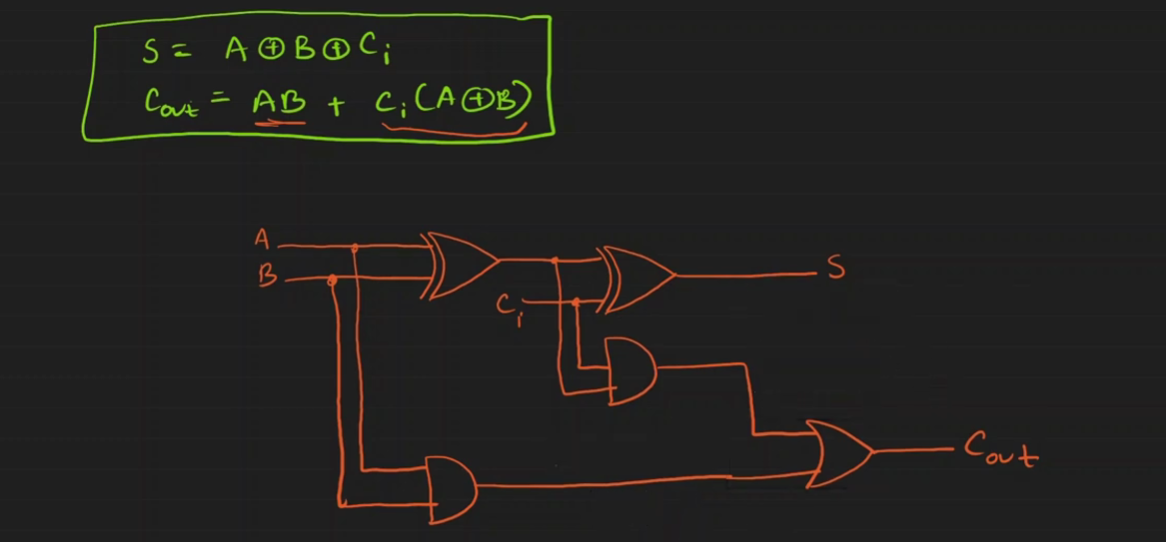 S = A ⊕ B ⊕ Ci
Cout = AB + Ci(A⊕B)
A
B
Ci
S
Cout